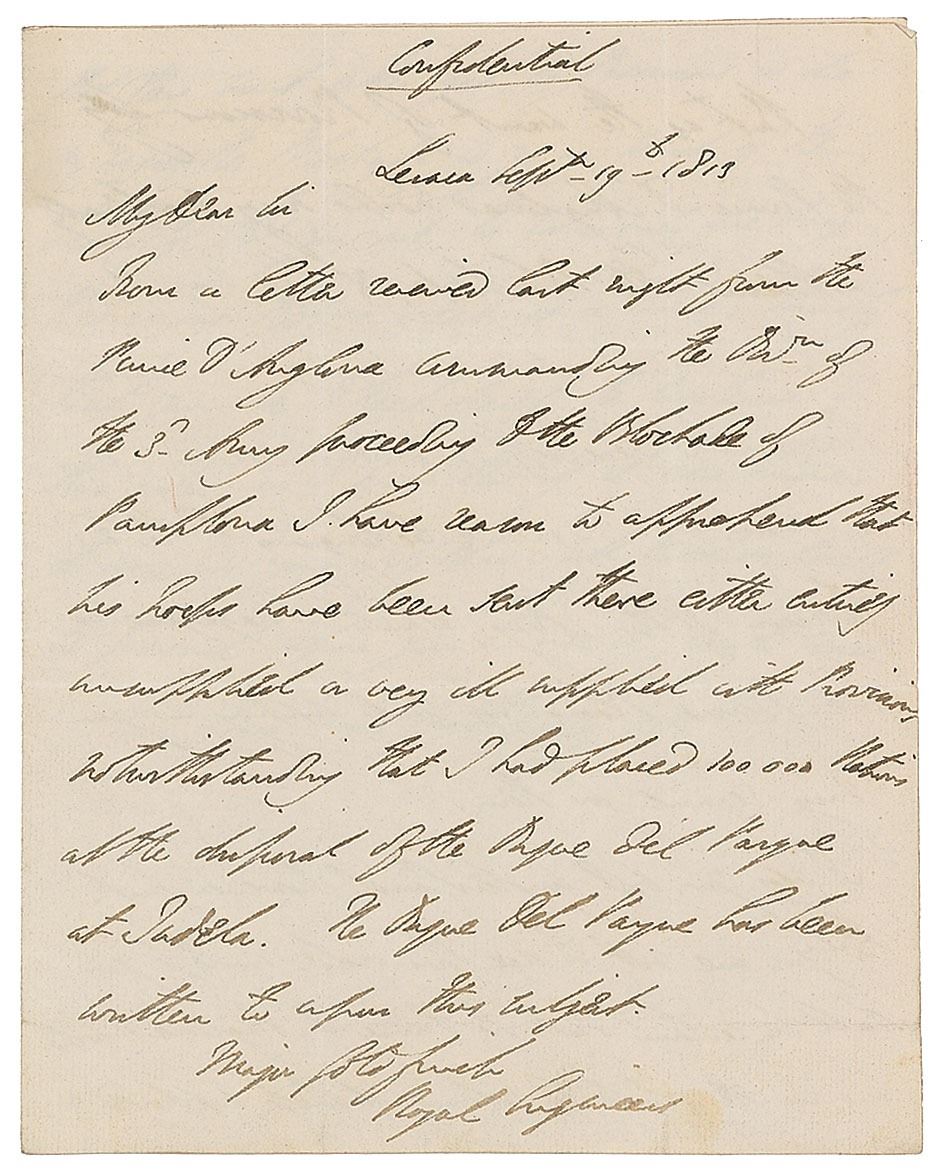 Confidential
Lesaca Septr 19th 1813
My Dear Sir
From a letter received last night from the
Prince D'Anglona commanding the Divn of
the 3d Army proceeding to the Blockade of
Pamplona I have reason to apprehend that
his Troops have been sent there either entirely
unsupplied or very ill supplied with Provisions
notwithstanding that I had placed 100.000 Rations
at the disposal of the Duque Del Parque
at Tudela. The Duque Del Parque has been
written to upon this subject.
Major Goldfinch
Royal Engineers